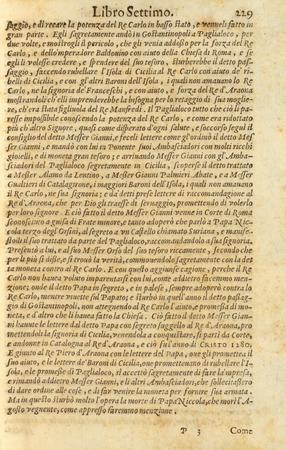 Libro Settimo. 229
saggio, e di recare la potenza del Re Carlo in basso stato, e venneli fatto in
gran parte. Egli segretamente andò in Gostantinopoli a Paglialoco, per
due volte, e mostrogli il pericolo, che gli venia addosso per la forza del Re
Carlo, e dello imperadore Baldovino con aiuto della Chiesa di Roma, e se
egli il volesse credere, e spendere del suo tesoro, sturberebbe il detto passaggio,
faccendo rubellare l'Isola di Cicilia al Re Carlo con aiuto de ribelli
di Cicilia, e con gl'altri Baroni dell'Isola, i quali non amavano lo Re
Carlo, ne la signoria de' Franceschi, e con aiuto, e forza del Re d'Araona
mostrandoli ch'egli imprenderebbe la bisogna per lo retaggio di sua moglie,
ch'era stata figliuola del Re Manfredi. Il Paglialoco tutto che ciò li paresse
impossibile conoscendo la potenza del Re Carlo, e come era ridottato
più ch'altro Signore, quasi come disperato d'ogni salute, e soccorso seguì il
consiglio del detto Messer Gianni, e feceli lettere come gl'ordinò il detto Messer
Gianni, e mandò con lui in Ponente suoi Ambasciadori con molti ricchi
gioielli, e di moneta gran tesoro; e arrivando Messer Gianni con gl'Ambasciadori
del Paglialoco segretamente in Cicilia, scoperse il detto trattato
a Messer Alamo da Lentino, a Messer Gianni Palmieri Abate, e a Messer
Gualtieri di Catalagirona, i maggiori Baroni dell'Isola, i quali non amavano
il Re Carlo, ne sua signoria; e da' detti prese lettere di raccomandagione al
Re d'Araona, che per Dio gli traesse di servaggio, promettendo di volerlo
per loro signore. E ciò fatto il detto Messer Gianni venne in Corte di Roma
sconosciuto a guisa di Frate minore, e tanto adoperò che parlò a Papa Niccola
terzo degl'Orsini, al segreto a un Castello chiamato Suriana, e manifestolli
il suo trattato da parte del Paglialoco, raccomandandolo a sua signoria.
Presentò a lui, e a Messer Orso del suo tesoro riccamente, secondo che
per li più si disse, e si trovò la verità, commovendolo segretamente con la detta
moneta contro al Re Carlo. E con quello aggiunse cagione, perchè il Re
Carlo non havea voluto imparentarsi con lui, come addietro facemmo menzione,
onde il detto Papa in segreto, e in palese, sempre adoperò contro lo
Re Carlo, mentre vivette sul Papato; e sturbò in quell'anno il detto passaggio
di Gostantinopoli, non attegnendo al Re Carlo l'aiuto, e promessa di moneta,
e d'altro che li havea fatto la Chiesa. Ciò fatto il detto Messer Gianni
havute le lettere dal detto Papa con segreto suggello al Re d'Araona, promettendoli
la signoria di Cicilia, venendola a conquistare, si partì da Corte,
e andonne in Catalogna al Red'Araona, e ciò fu l'anno di CRISTO 1280.
E giunto al Re Piero d'Araona con le lettere del Papa, ove gli promettea il
suo aiuto, e le lettere de' Baroni di Cicilia, ove promettevano di rubellare l'Isola,
e le promesse di Paglialoco, sì accettò segretamente di fare la impresa,
e rimandò addietro Messer Gianni, e li altri Ambasciadori, che sollecitassero
di dare ordine alle cose, e di far venire la moneta per fornire sua armata.
Ma in questo sturbò molto l'opera la morte di Papa Niccola, che morì l'Agosto
vegnente, come appresso faremmo menzione.
P 3 Come